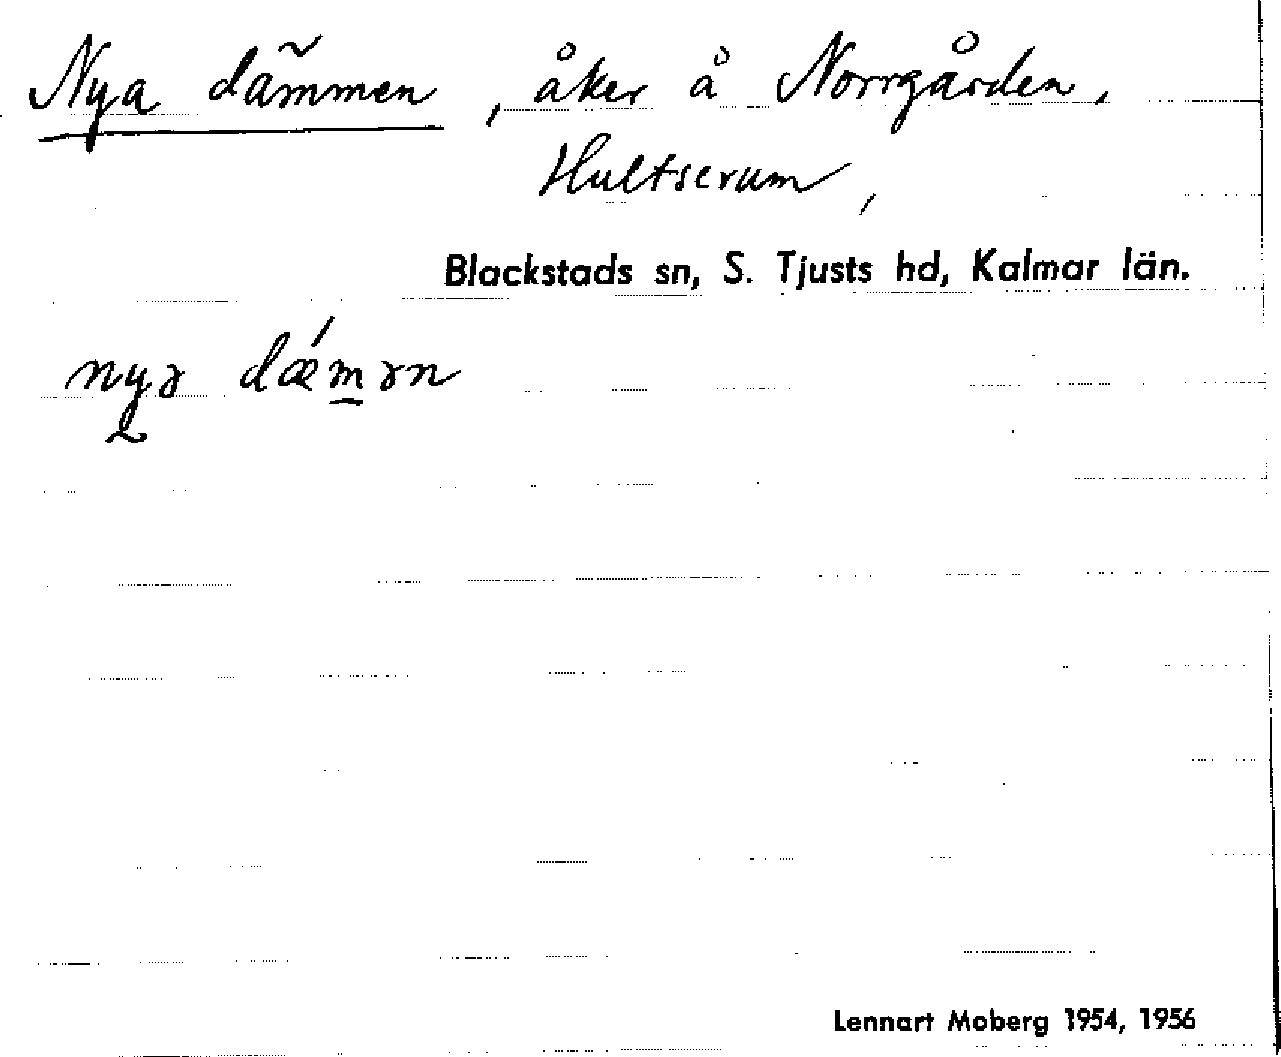 Nya dämmen, åker å Norrgården,
Hultserum,
Blackstads sn, S. Tjusts hd, Kalmar län.
nyə dǽm̲ən
Lennart Moberg 1954, 1956